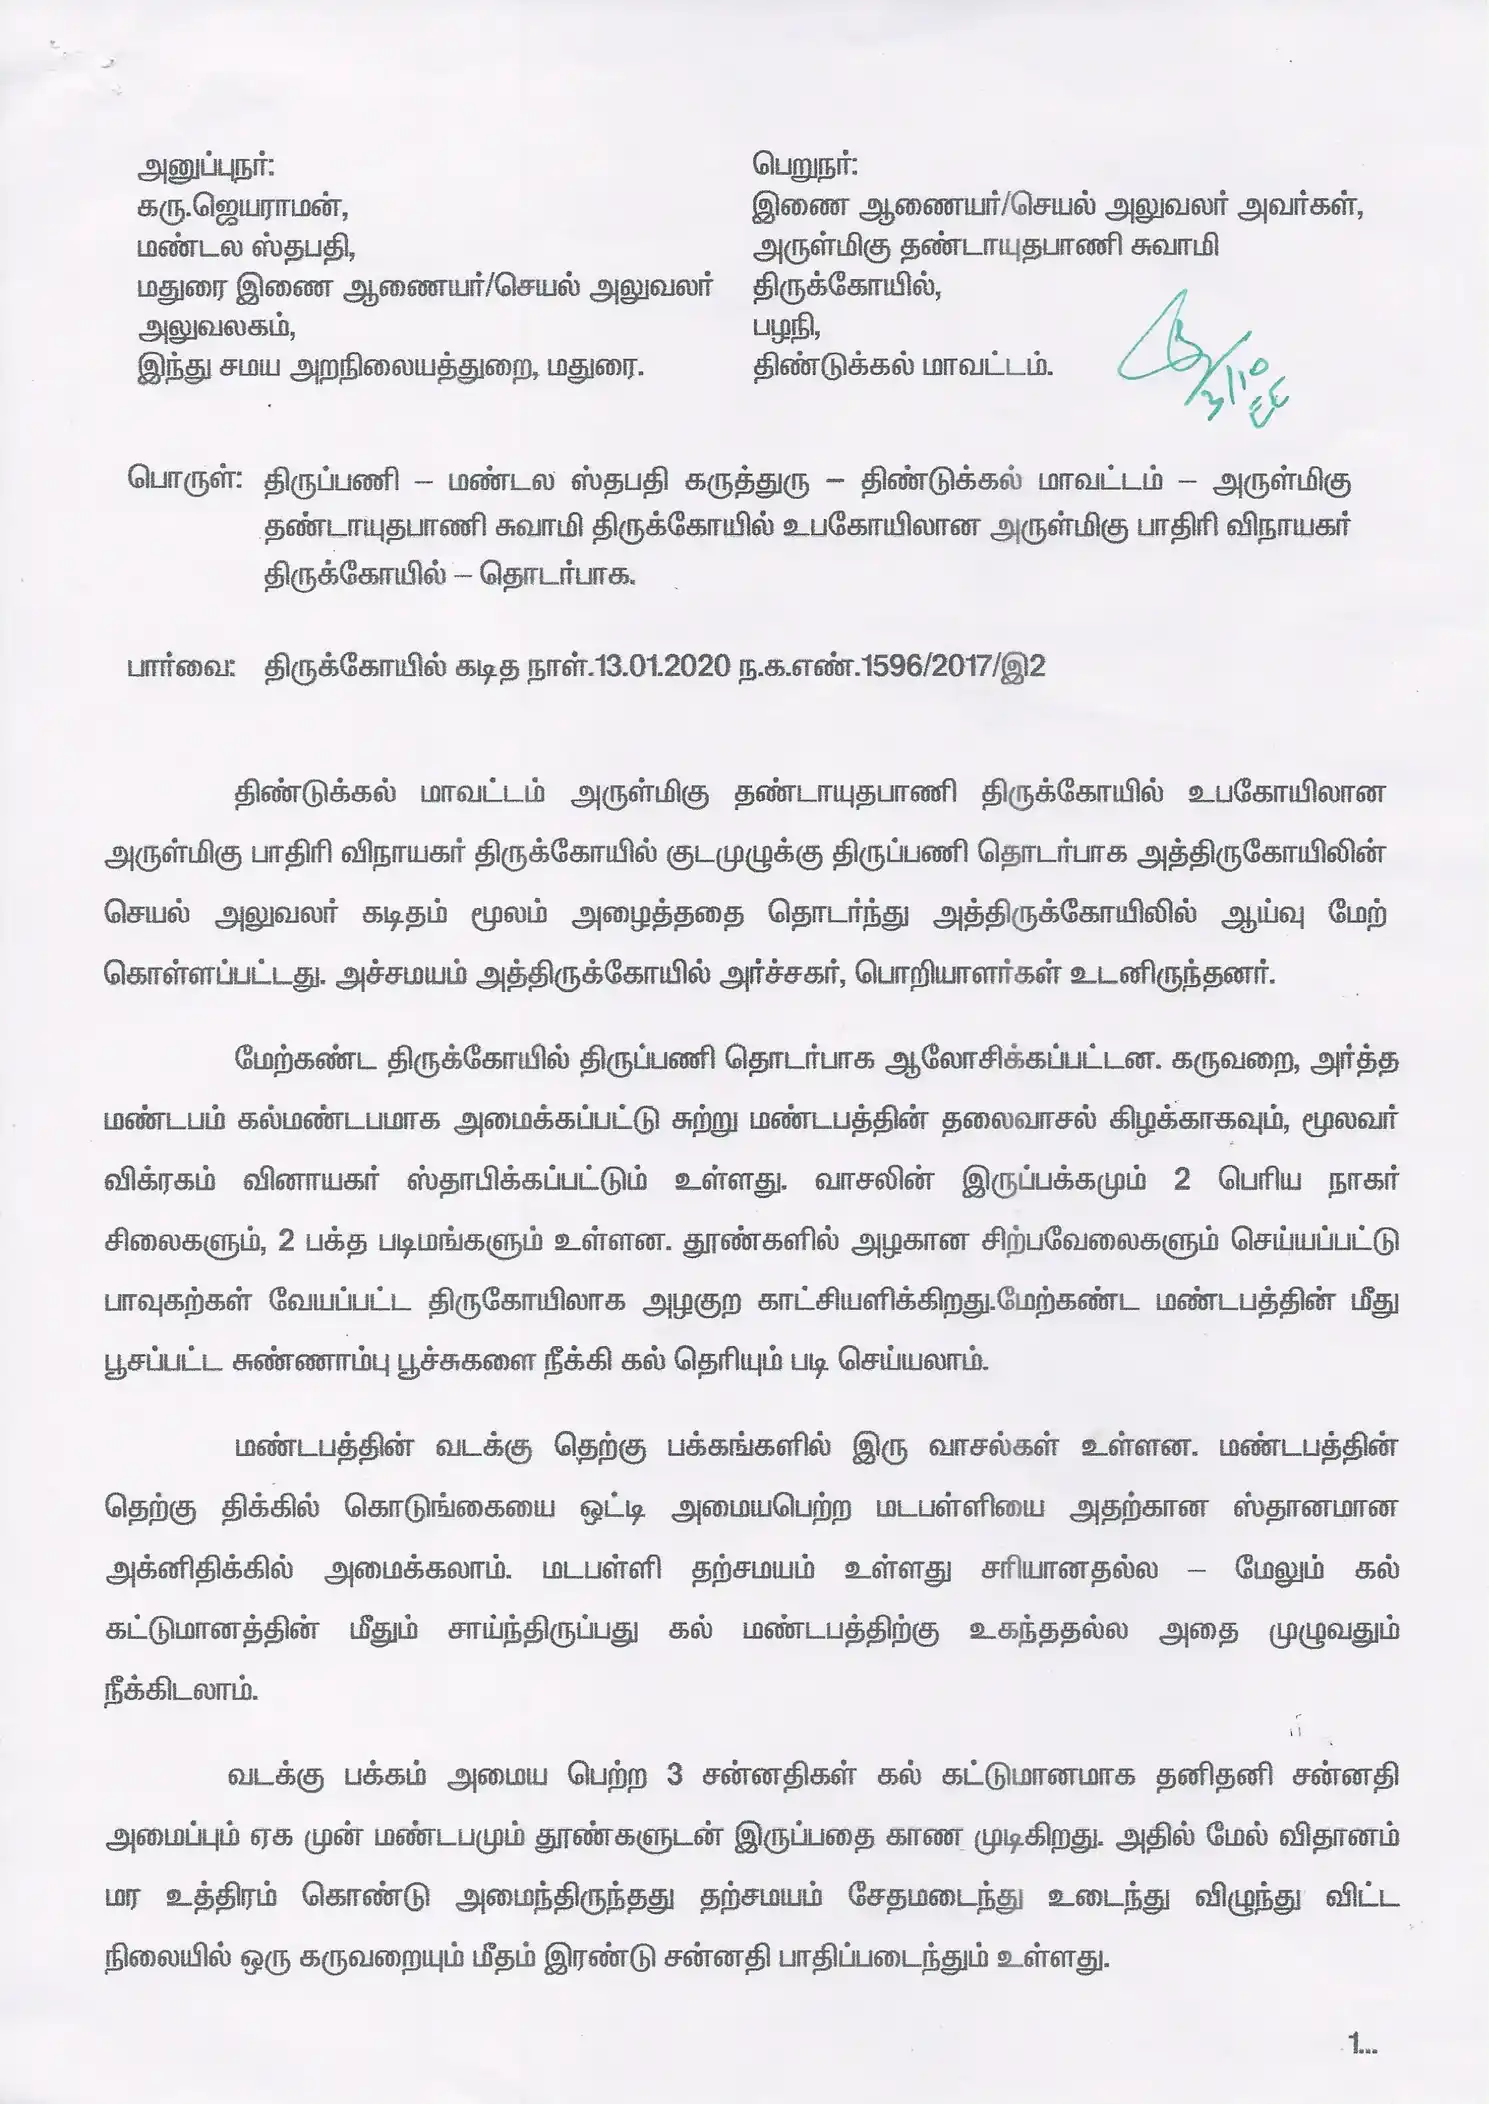 அனுப்புநர்:
கரு.ஜெயராமன்,
மண்டல ஸ்தபதி,
மதுரை இணை ஆணையர்/செயல் அலுவலர்
அலுவலகம்,
இந்து சமய அறநிலையத்துறை, மதுரை.
பெறுநர்:
இணை ஆணையர்/செயல் அலுவலர் அவர்கள்,
அருள்மிகு தண்டாயுதபாணி சுவாமி
திருக்கோயில்,
பழநி,
திண்டுக்கல் மாவட்டம்.
3/10
EE
பொருள்: திருப்பணி – மண்டல ஸ்தபதி கருத்துரு – திண்டுக்கல் மாவட்டம் – அருள்மிகு
தண்டாயுதபாணி சுவாமி திருக்கோயில் உபகோயிலான அருள்மிகு பாதிரி விநாயகர்
திருக்கோயில் – தொடர்பாக.
பார்வை: திருக்கோயில் கடித நாள்.13.01.2020 ந.க.எண்.1596/2017/இ2
திண்டுக்கல் மாவட்டம் அருள்மிகு தண்டாயுதபாணி திருக்கோயில் உபகோயிலான
அருள்மிகு பாதிரி விநாயகர் திருக்கோயில் குடமுழுக்கு திருப்பணி தொடர்பாக அத்திருகோயிலின்
செயல் அலுவலர் கடிதம் மூலம் அழைத்ததை தொடர்ந்து அத்திருக்கோயிலில் ஆய்வு மேற்
கொள்ளப்பட்டது. அச்சமயம் அத்திருக்கோயில் அர்ச்சகர், பொறியாளர்கள் உடனிருந்தனர்.
மேற்கண்ட திருக்கோயில் திருப்பணி தொடர்பாக ஆலோசிக்கப்பட்டன. கருவறை, அர்த்த
மண்டபம் கல்மண்டபமாக அமைக்கப்பட்டு சுற்று மண்டபத்தின் தலைவாசல் கிழக்காகவும், மூலவர்
விக்ரகம் வினாயகர் ஸ்தாபிக்கப்பட்டும் உள்ளது. வாசலின் இருப்பக்கமும் 2 பெரிய நாகர்
சிலைகளும், 2 பக்த படிமங்களும் உள்ளன. தூண்களில் அழகான சிற்பவேலைகளும் செய்யப்பட்டு
பாவுகற்கள் வேயப்பட்ட திருகோயிலாக அழகுற காட்சியளிக்கிறது.மேற்கண்ட மண்டபத்தின் மீது
பூசப்பட்ட சுண்ணாம்பு பூச்சுகளை நீக்கி கல் தெரியும் படி செய்யலாம்.
மண்டபத்தின் வடக்கு தெற்கு பக்கங்களில் இரு வாசல்கள் உள்ளன. மண்டபத்தின்
தெற்கு திக்கில் கொடுங்கையை ஒட்டி அமையபெற்ற மடபள்ளியை அதற்கான ஸ்தானமான
அக்னிதிக்கில் அமைக்கலாம். மடபள்ளி தற்சமயம் உள்ளது சரியானதல்ல – மேலும் கல்
கட்டுமானத்தின் மீதும் சாய்ந்திருப்பது கல் மண்டபத்திற்கு உகந்ததல்ல அதை முழுவதும்
நீக்கிடலாம்.
வடக்கு பக்கம் அமைய பெற்ற 3 சன்னதிகள் கல் கட்டுமானமாக தனிதனி சன்னதி
அமைப்பும் ஏக முன் மண்டபமும் தூண்களுடன் இருப்பதை காண முடிகிறது. அதில் மேல் விதானம்
மர உத்திரம் கொண்டு அமைந்திருந்தது தற்சமயம் சேதமடைந்து உடைந்து விழுந்து விட்ட
நிலையில் ஒரு கருவறையும் மீதம் இரண்டு சன்னதி பாதிப்படைந்தும் உள்ளது.
1...